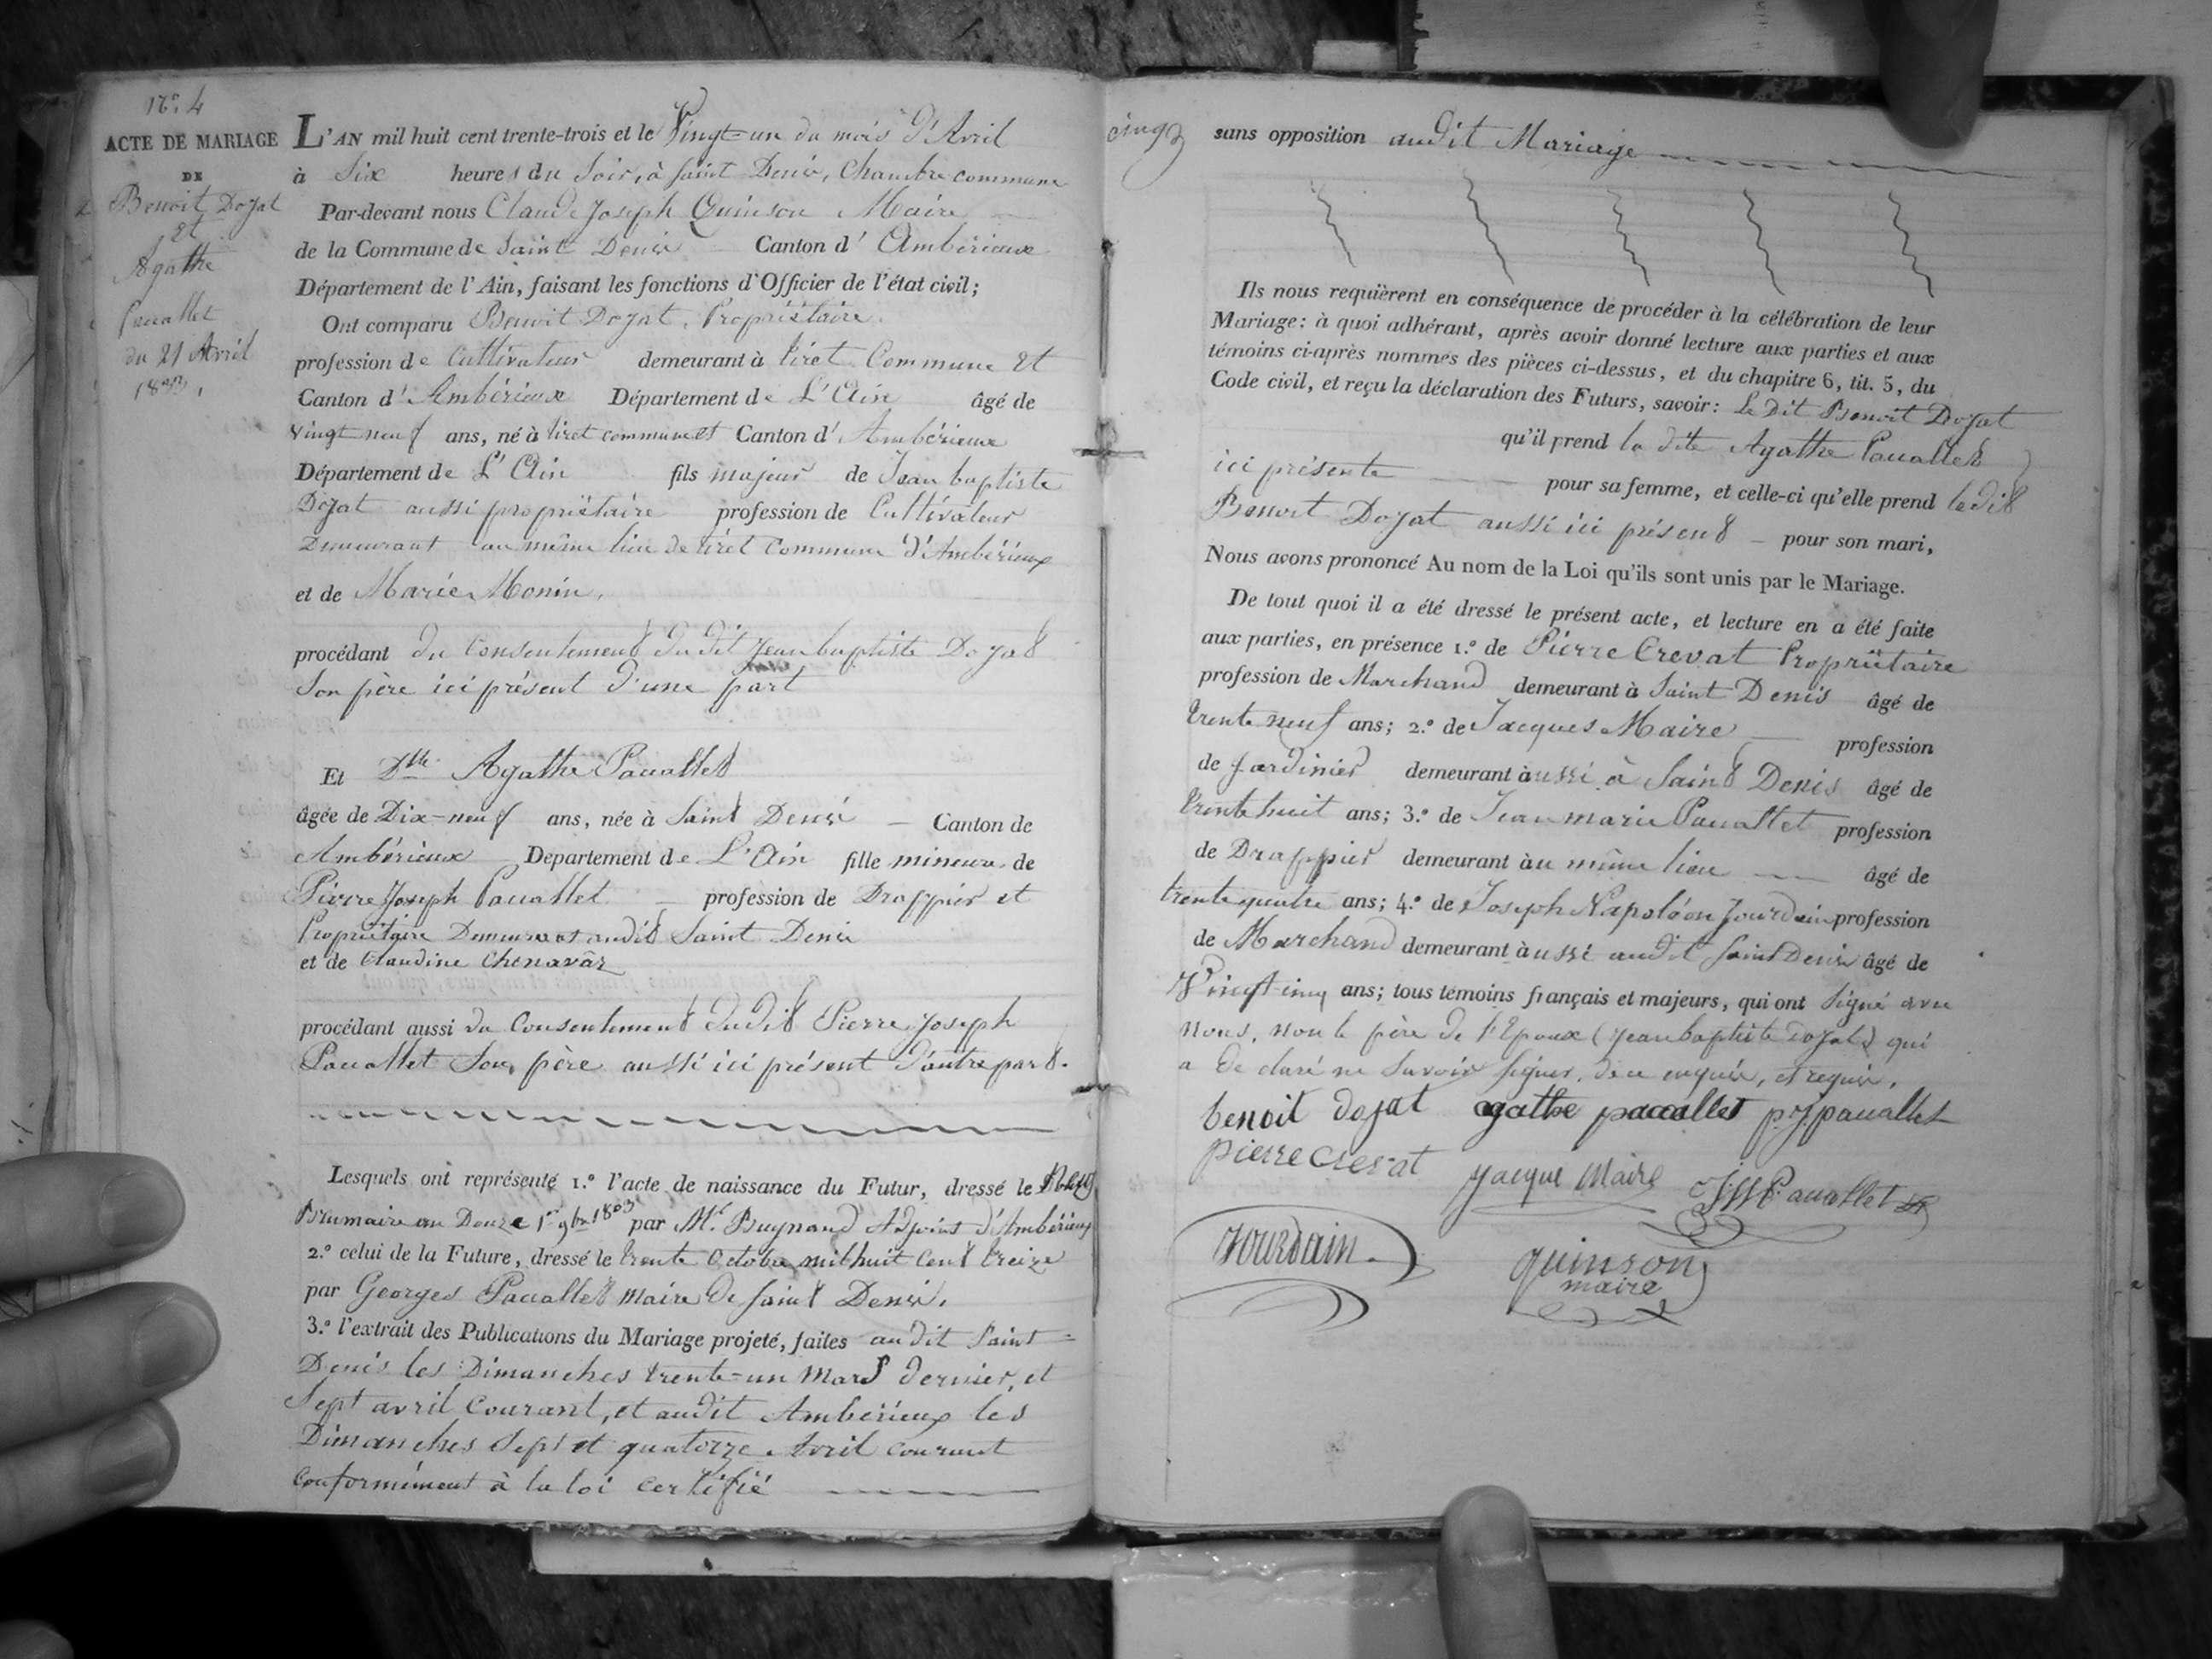 N.º 4
ACTE DE MARIAGE
DE
Benoit Dojat
et
Agathe
Pauallet
du 21 Avril
1833.
L'AN mil huit cent trente-trois et le Vingt-un du mois d'Avril
à Six heures du Soir, à Saint Denis, Chambre commune
Par-devant nous Claude Joseph Quinson Maire
de la Commune de Saint Denis Canton d'Ambérieux
Département de l'Ain, faisant les fonctions d'Officier de l'état civil;
Ont comparu Benoit Dojat, Propriétaire
profession de Cultivateur demeurant à tiret Commune et
Canton d'Ambérieux Département de L'Ain âgé de
vingt neuf ans, né à tiret commune et Canton d'Ambérieux
Département de L'Ain fils majeur de Jean baptiste
Dojat aussi propriétaire profession de Cultivateur
Demeurant au même lieu de tiret Commune d'Ambérieux
et de Marie Monin,
procédant du Consentement du dit Jean baptiste Dojat
Son père ici présent d'une part
Et Dlle Agathe Pauallet
âgée de Dix-neuf ans, née à Saint Denis Canton de
Ambérieux Departement de L'Ain fille mineure de
Pierre Joseph Pauallet profession de Drappier et
Propriétaire Demeurant audit Saint Denis
et de Claudine Chenavaz
procédant aussi du Consentement dudit Pierre Joseph
Pauallet Son père aussi ici présent d'autre part.
Lesquels ont représenté 1.º l'acte de naissance du Futur, dressé le
Brumaire an Douze 1er 9bre 1803 par Mr. Buynand Adjoint d'Ambérieux
2.º celui de la Future, dressé le trente Octobre mil huit Cent treize
par Georges Pauallet maire de Saint Denis.
3.º l'extrait des Publications du Mariage projeté, faites audit Saint=
Denis les Dimanches trente-un Mars dernier, et
Sept avril Courant, et audit Ambérieux les
Dimanches Sept et quatorze Avril courant
conformément à la loi certifié
cinq
sans opposition audit Mariage
Ils nous requièrent en conséquence de procéder à la célébration de leur
Mariage: à quoi adhérant, après avoir donné lecture aux parties et aux
témoins ci-après nommés des pièces ci-dessus, et du chapitre 6, tit. 5, du
Code civil, et reçu la déclaration des Futurs, savoir: Le dit Benoit Dojat
qu'il prend la dite Agathe Pauallet
ici présente pour sa femme, et celle-ci qu'elle prend le dit
Benoit Dojat aussi ici présent pour son mari,
Nous avons prononcé Au nom de la Loi qu'ils sont unis par le Mariage.
De tout quoi il a été dressé le présent acte, et lecture en a été faite
aux parties, en présence 1.º de Pierre Crevat Propriétaire
profession de Marchand demeurant à Saint Denis âgé de
trente neuf ans; 2.º de Jacques Maire profession
de Jardinier demeurant à ussi à Saint Denis âgé de
trente huit ans; 3.º de Jean marie Pauallet profession
de Drappier demeurant àu même lieu âgé de
trente quatre ans; 4.º de Joseph Napoléon Jourdain profession
de Marchand demeurant àussi audit Saint Denis âgé de
Vingt cinq ans; tous témoins français et majeurs, qui ont Signé avec
nous, non le père de l'Epoux (Jean baptiste Dojat) qui
a déclaré ne Savoir Signer, de ce enquis, et requis.
benoit dojat agathe pauallet p. j. pauallet
pierre crevat jacque Maire J M Pauallet
Jourdain quinson
maire